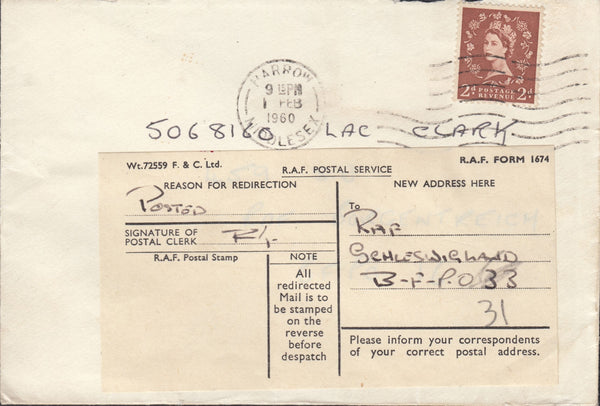 2d POSTAGE REVENUE 2d
HARROW
9 15 PM
1 FEB
1960
MIDDLESEX
5068160 LAC CLARK.
Wt.72559 F. & C. Ltd.
R.A.F. POSTAL SERVICE
R.A.F. FORM 1674
REASON FOR REDIRECTION
POSTED
SIGNATURE OF
POSTAL CLERK
R.A.F. Postal Stamp
NOTE
All
redirected
Mail is to
be stamped
on the
reverse
before
despatch
NEW ADDRESS HERE
To
RAF
SCHLESWIGLAND
B-F-P.O 33
31
Please inform your correspondents
of your correct postal address.